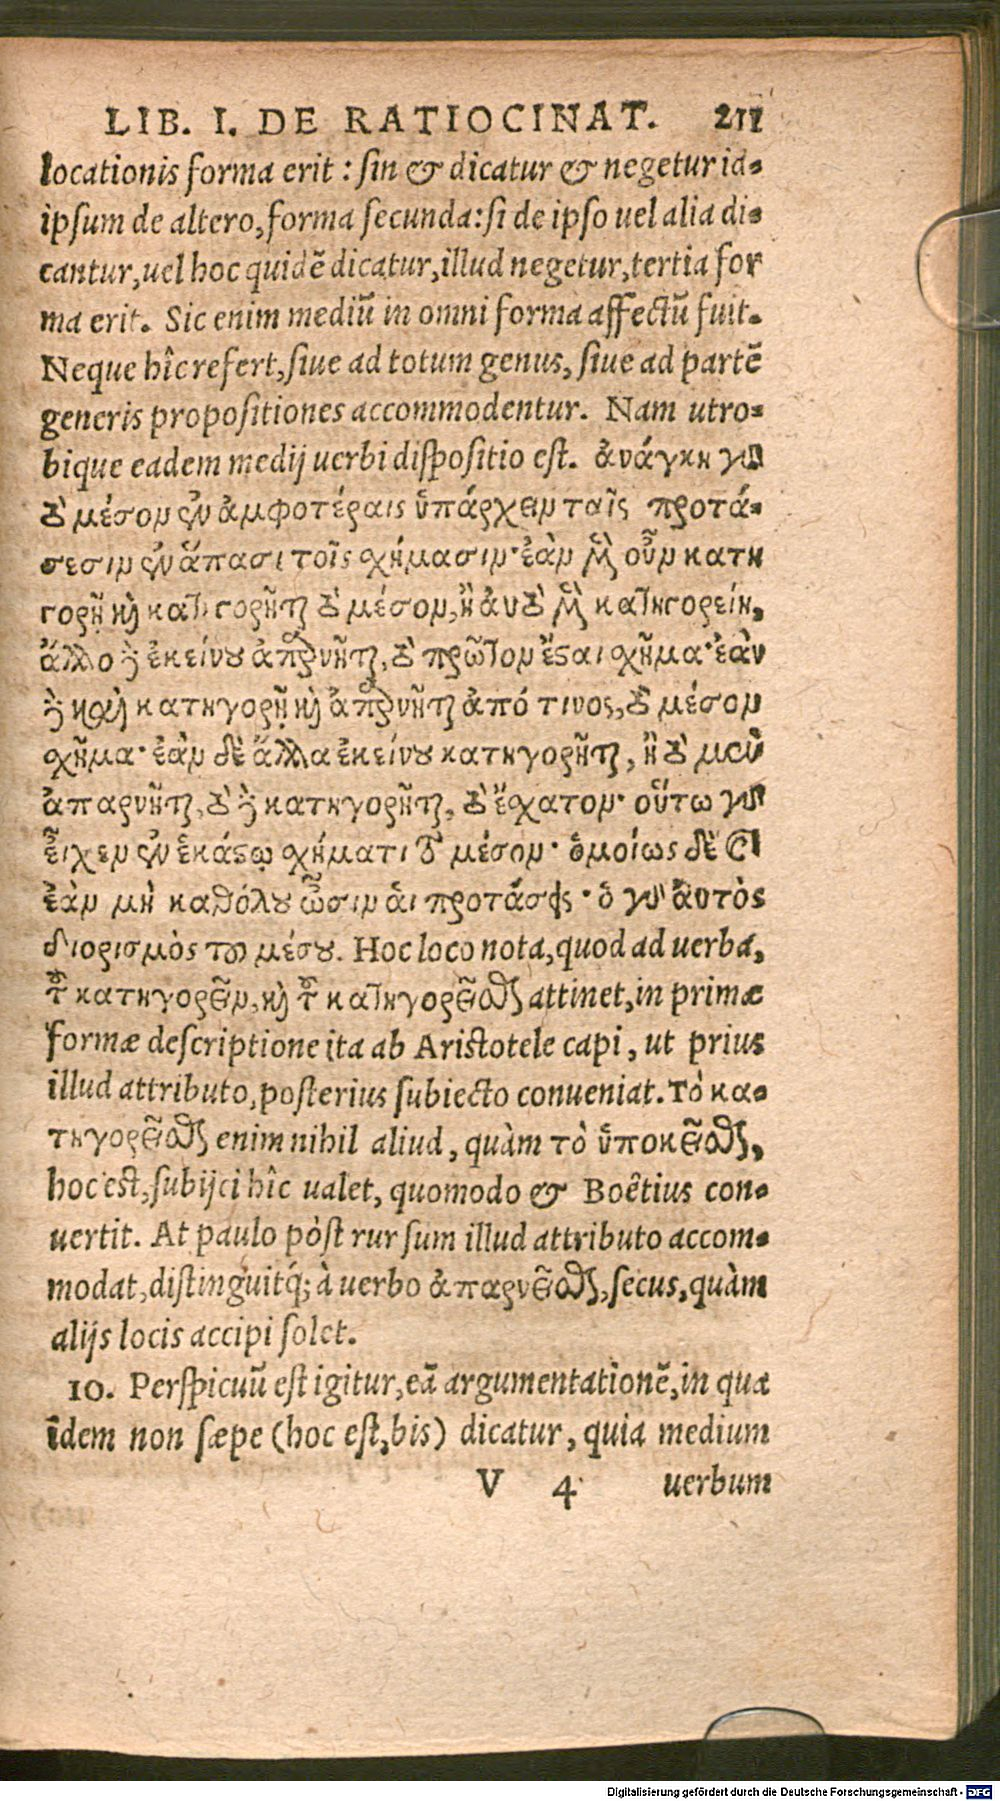 LIB. I. DE RATIOCINAT. 211
locationis forma erit : sin & dicatur & negetur id-
ipsum de altero, forma secunda: si de ipso uel alia di-
cantur, uel hoc quidē dicatur, illud negetur, tertia for
ma erit. Sic enim mediū in omni forma affectū fuit.
Neque hîc refert, siue ad totum genus, siue ad partē
generis propositiones accommodentur. Nam utro-
bique eadem medij uerbi dispositio est. ἀνάγκη γὰρ
τὸ μέσον ἐν ἀμφοτέραις ὑπάρχειν ταῖς προτά-
σεσιν ἐν ἅπασι τοῖς χήμασιν· ἐὰν μὲν οὖν κατη
γορῇ καὶ κατηγορῆται τὸ μέσον, ἢ αὐτὸ μὲν κατηγορείη,
ἄλλο δὲ ἐκείνου ἀπαρνῆται, τὸ πρῶτον ἔσαι χῆμα· ἐὰν
δὲ καὶ κατηγορῇ καὶ ἀπαρνῆται ἀπό τινος, τὸ μέσον
χῆμα· ἐὰν δὲ ἄλλα ἐκείνου κατηγορῆται, ἢ τὸ μὲν
ἀπαρνῆται, τὸ δὲ κατηγορῆται, τὸ ἔχατον· οὕτω γὰρ
εἶχεν ἐν ἑκάστῳ χήματι τὸ μέσον· ὁμοίως δὲ καὶ
ἐὰν μὴ καθόλου ὦσιν αἱ προτάσεις· ὁ γὰρ αὐτὸς
διορισμὸς τοῦ μέσου. Hoc loco nota, quod ad uerba,
τοῦ κατηγορεῖν, καὶ τοῦ κατηγορεῖσθαι attinet, in primæ
formæ descriptione ita ab Aristotele capi, ut prius
illud attributo, posterius subiecto conueniat. Τὸ κα-
τηγορεῖσθαι enim nihil aliud, quàm τὸ ὑποκεῖσθαι,
hoc est, subijci hîc ualet, quomodo & Boêtius con-
uertit. At paulo pòst rursum illud attributo accom-
modat, distinguitq́; à uerbo ἀπαρνεῖσθαι, secus, quàm
alijs locis accipi solet.
10. Perspicuū est igitur, eā argumentationē, in qua
idem non sæpe (hoc est, bis) dicatur, quia medium
V 4 uerbum
Digitalisierung gefördert durch die Deutsche Forschungsgemeinschaft - DFG